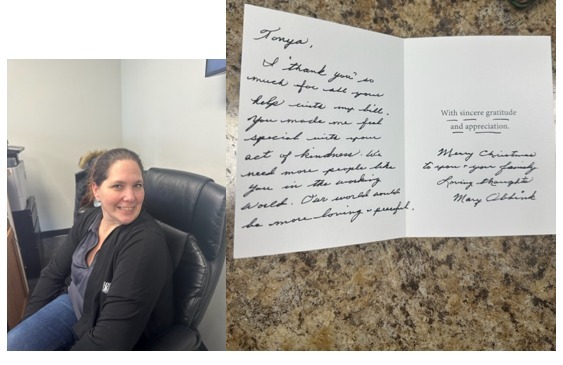 Tonya,
I "thank you" so
much for all your
help with my bill.
You made me feel
special with your
act of kindness. We
need more people like
you in the working
world. Our world would
be more loving & peaceful.
With sincere gratitude
and appreciation.
Merry Christmas
to you & your family
Loving thoughts
Mary